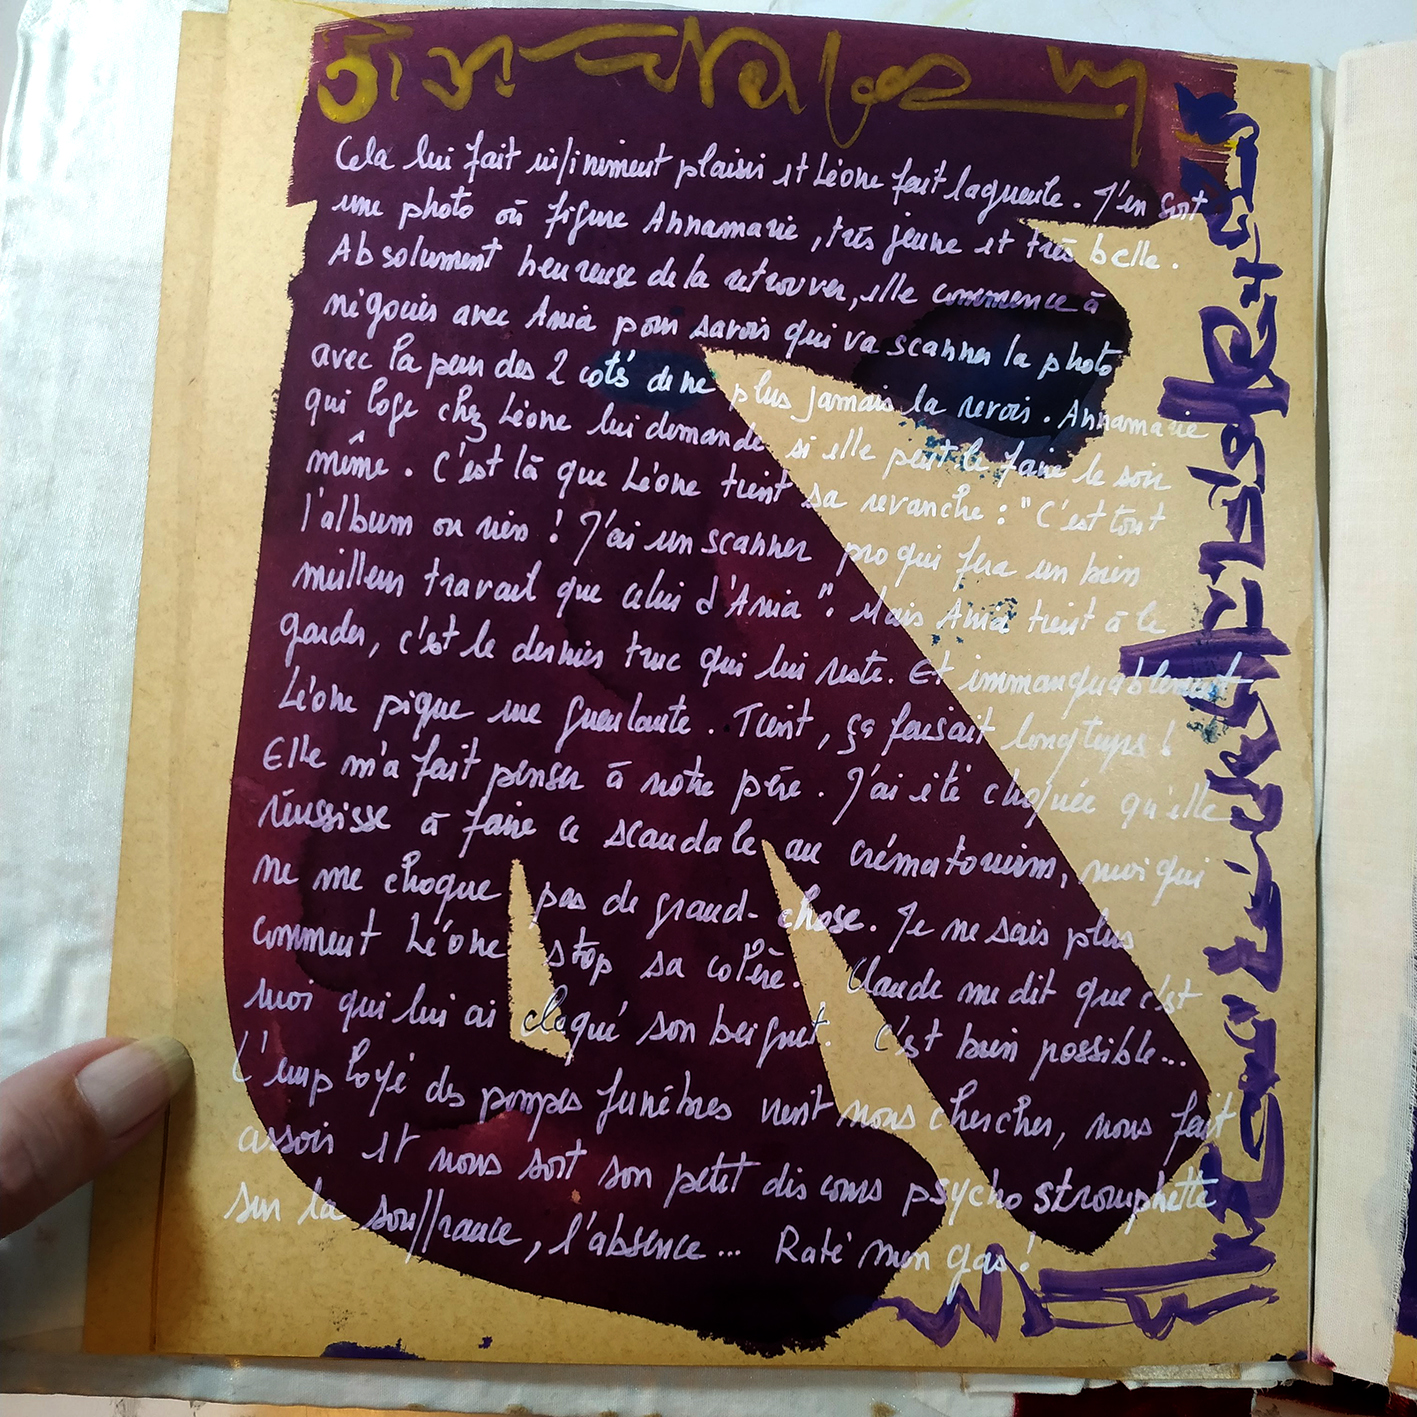 Cela lui fait infiniment plaisir et Léone fait la gueule. J'en sort
une photo où figure Annamarie, très jeune et très belle.
Absolument heureuse de la retrouver, elle commence à
négocier avec Ania pour savoir qui va scanner la photo
avec la peur des 2 cotés de ne plus jamais la revoir. Annamarie
qui loge chez Léone lui demande si elle peut le faire le soir
même. C'est là que Léone tient sa revanche : "C'est tout
l'album ou rien ! J'ai un scanner pro qui fera un bien
meilleur travail que celui d'Ania". Mais Ania tient à le
garder, c'est le dernier truc qui lui reste. Et immanquablement
Léone pique une gueulante. Tient, ça faisait longtemps !
Elle m'a fait penser à notre père. J'ai été choquée qu'elle
réussisse à faire ce scandale au crématorium, moi qui
ne me choque pas de grand-chose. Je ne sais plus
comment Léone stop sa colère. Claude me dit que c'est
moi qui lui ai cloqué son beignet. C'est bien possible...
L'employé des pompes funèbres vient nous chercher, nous fait
assoir et nous sort son petit discours psycho stroumphette
sur la souffrance, l'absence... Raté mon gas !